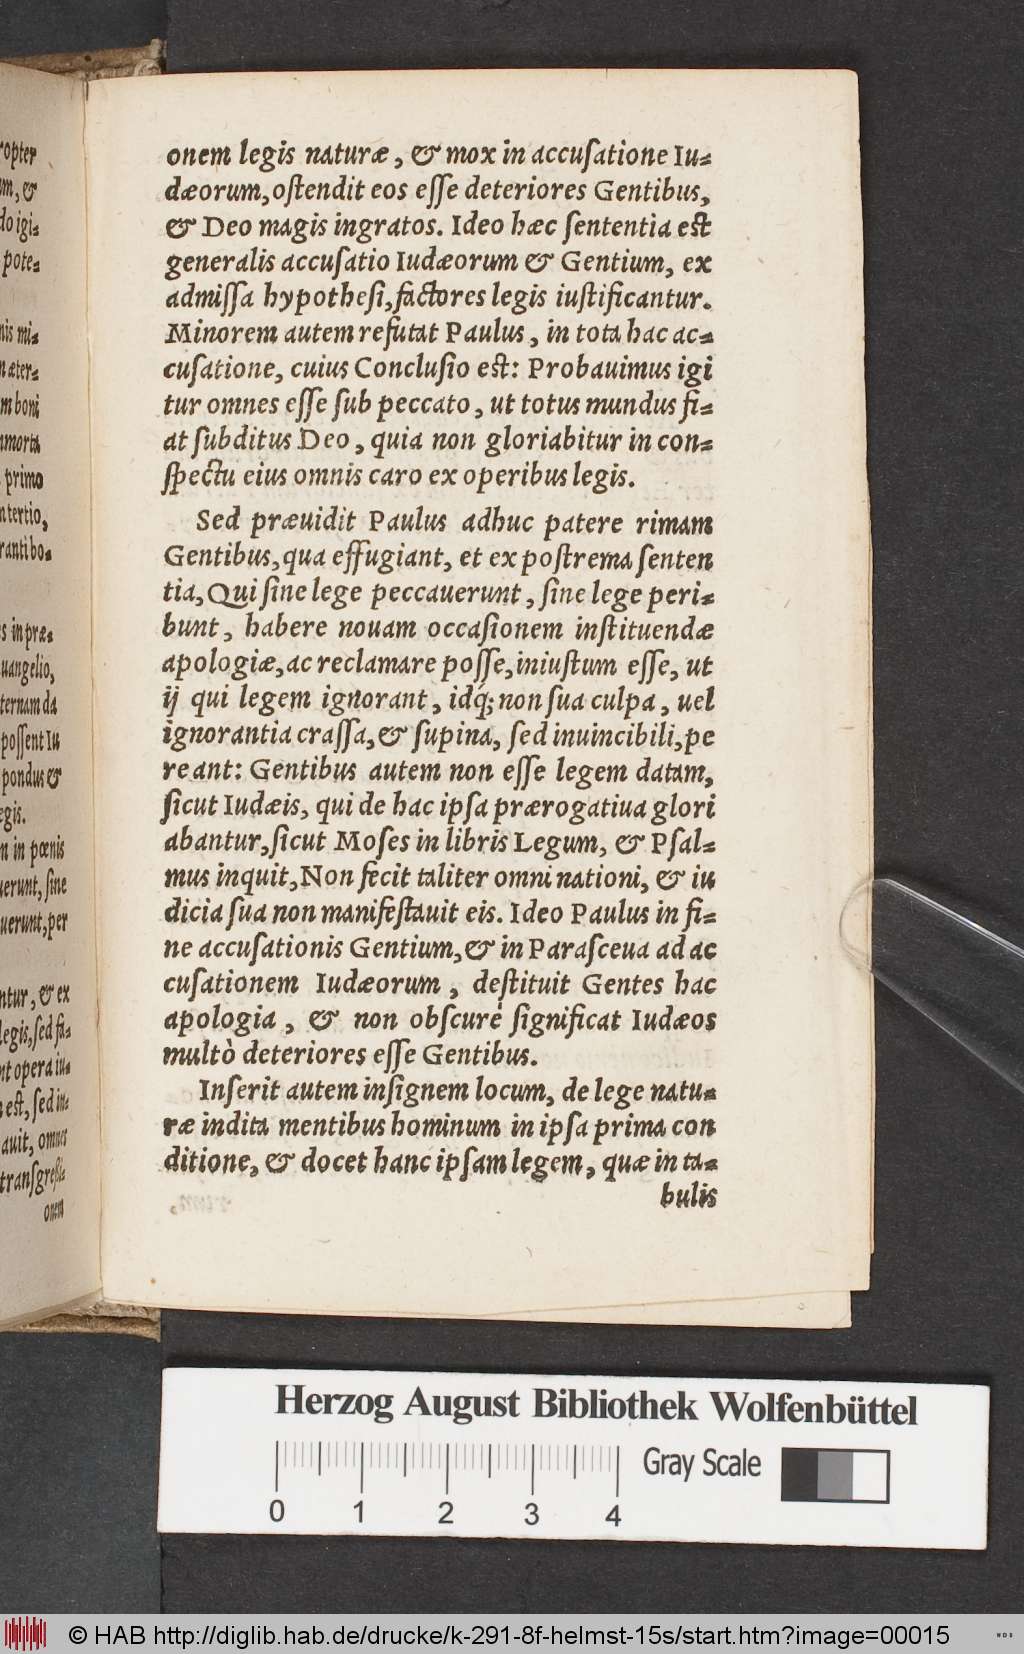 ropter
m, &
do igi-
pote-
nis mi-
næter-
m boni
mmorta
primo
n tertio,
ranti bo-
s in præ-
uangelio,
ternam da
possent Iu
pondus &
egis.
n in pœnis
uerunt, sine
uerunt, per
ntur, & ex
legis, sed fa-
nt opera iu-
est, sed in-
auit, omnes
transgressi-
onem
onem legis naturæ, & mox in accusatione Iu-
dæorum, ostendit eos esse deteriores Gentibus,
& Deo magis ingratos. Ideo hæc sententia est
generalis accusatio Iudæorum & Gentium, ex
admissa hypothesi, factores legis iustificantur.
Minorem autem refutat Paulus, in tota hac ac-
cusatione, cuius Conclusio est: Probauimus igi
tur omnes esse sub peccato, ut totus mundus fi-
at subditus Deo, quia non gloriabitur in con-
spectu eius omnis caro ex operibus legis.
Sed præuidit Paulus adhuc patere rimam
Gentibus, qua effugiant, et ex postrema senten
tia, Qui sine lege peccauerunt, sine lege peri-
bunt, habere nouam occasionem instituendæ
apologiæ, ac reclamare posse, iniustum esse, ut
ij qui legem ignorant, idq́; non sua culpa, uel
ignorantia crassa, & supina, sed inuincibili, pe
reant: Gentibus autem non esse legem datam,
sicut Iudæis, qui de hac ipsa prærogatiua glori
abantur, sicut Moses in libris Legum, & Psal-
mus inquit, Non fecit taliter omni nationi, & iu
dicia sua non manifestauit eis. Ideo Paulus in fi-
ne accusationis Gentium, & in Parasceua ad ac
cusationem Iudæorum, destituit Gentes hac
apologia, & non obscurè significat Iudæos
multò deteriores esse Gentibus.
Inserit autem insignem locum, de lege natu-
ræ indita mentibus hominum in ipsa prima con
ditione, & docet hanc ipsam legem, quæ in ta-
bulis
Herzog August Bibliothek Wolfenbüttel
Gray Scale
0 1 2 3 4
© HAB http://diglib.hab.de/drucke/k-291-8f-helmst-15s/start.htm?image=00015